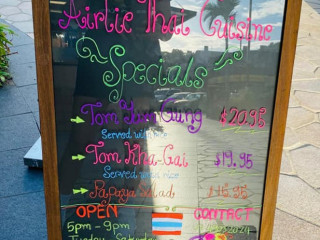 Airlie Thai Cuisine
Specials
Tom Yum Gung $20.95
Served with rice
Tom Kha-Gai $19.95
Served with rice
Papaya Salad $16.95
OPEN CONTACT
5pm - 9pm
Tuesday Saturday